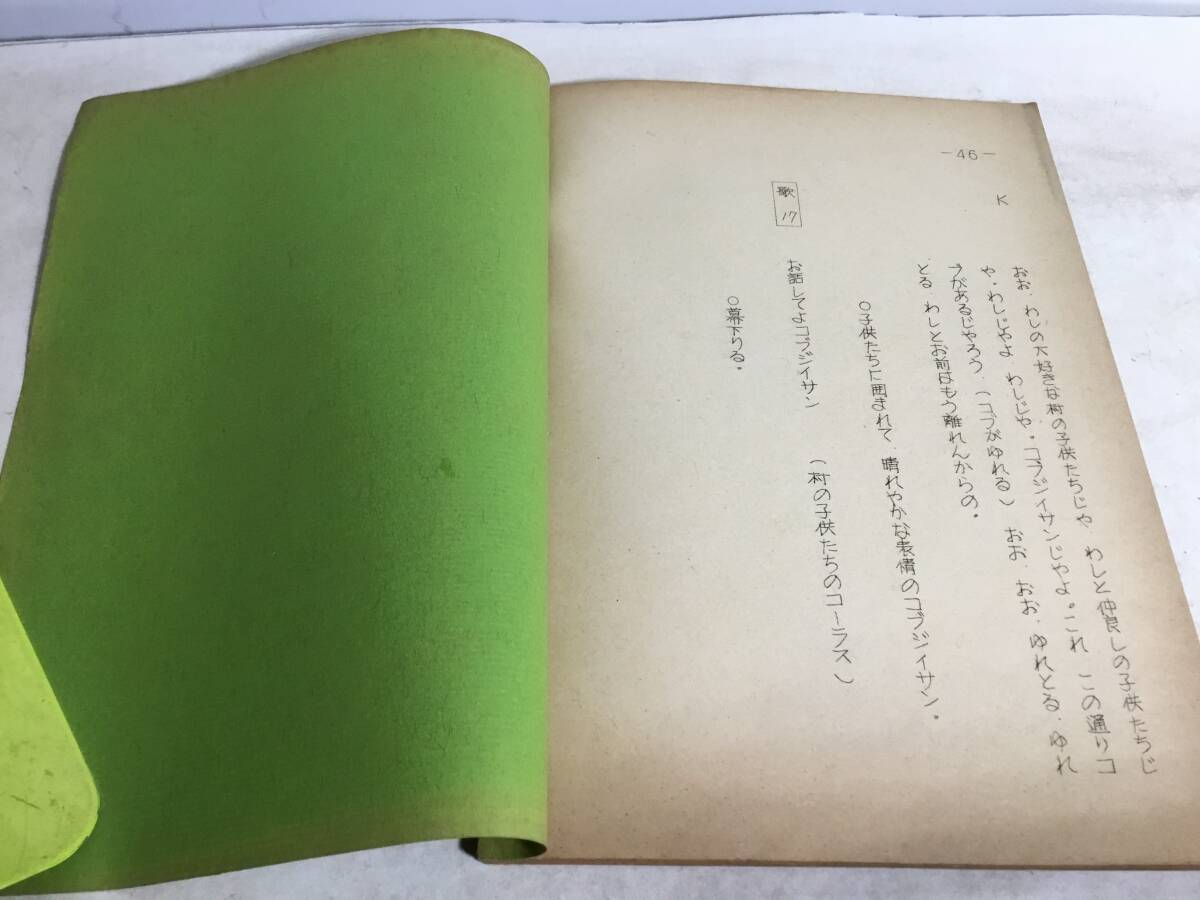 －46－
K
おお、わしの大好きな村の子供たちじゃ　わしと仲良しの子供たちじ
ゃ・わしじゃよ　わしじゃ・コブジイサンじゃよ。これ　この通りコ
ブがあるじゃろう、（コブがゆれる）　おお、おお、ゆれとる、ゆれ
とる、わしとお前はもう離れんからの。
○子供たちに囲まれて、晴れやかな表情のコブジイサン。
歌17
お話してよコブジイサン　（村の子供たちのコーラス）
○幕下りる。